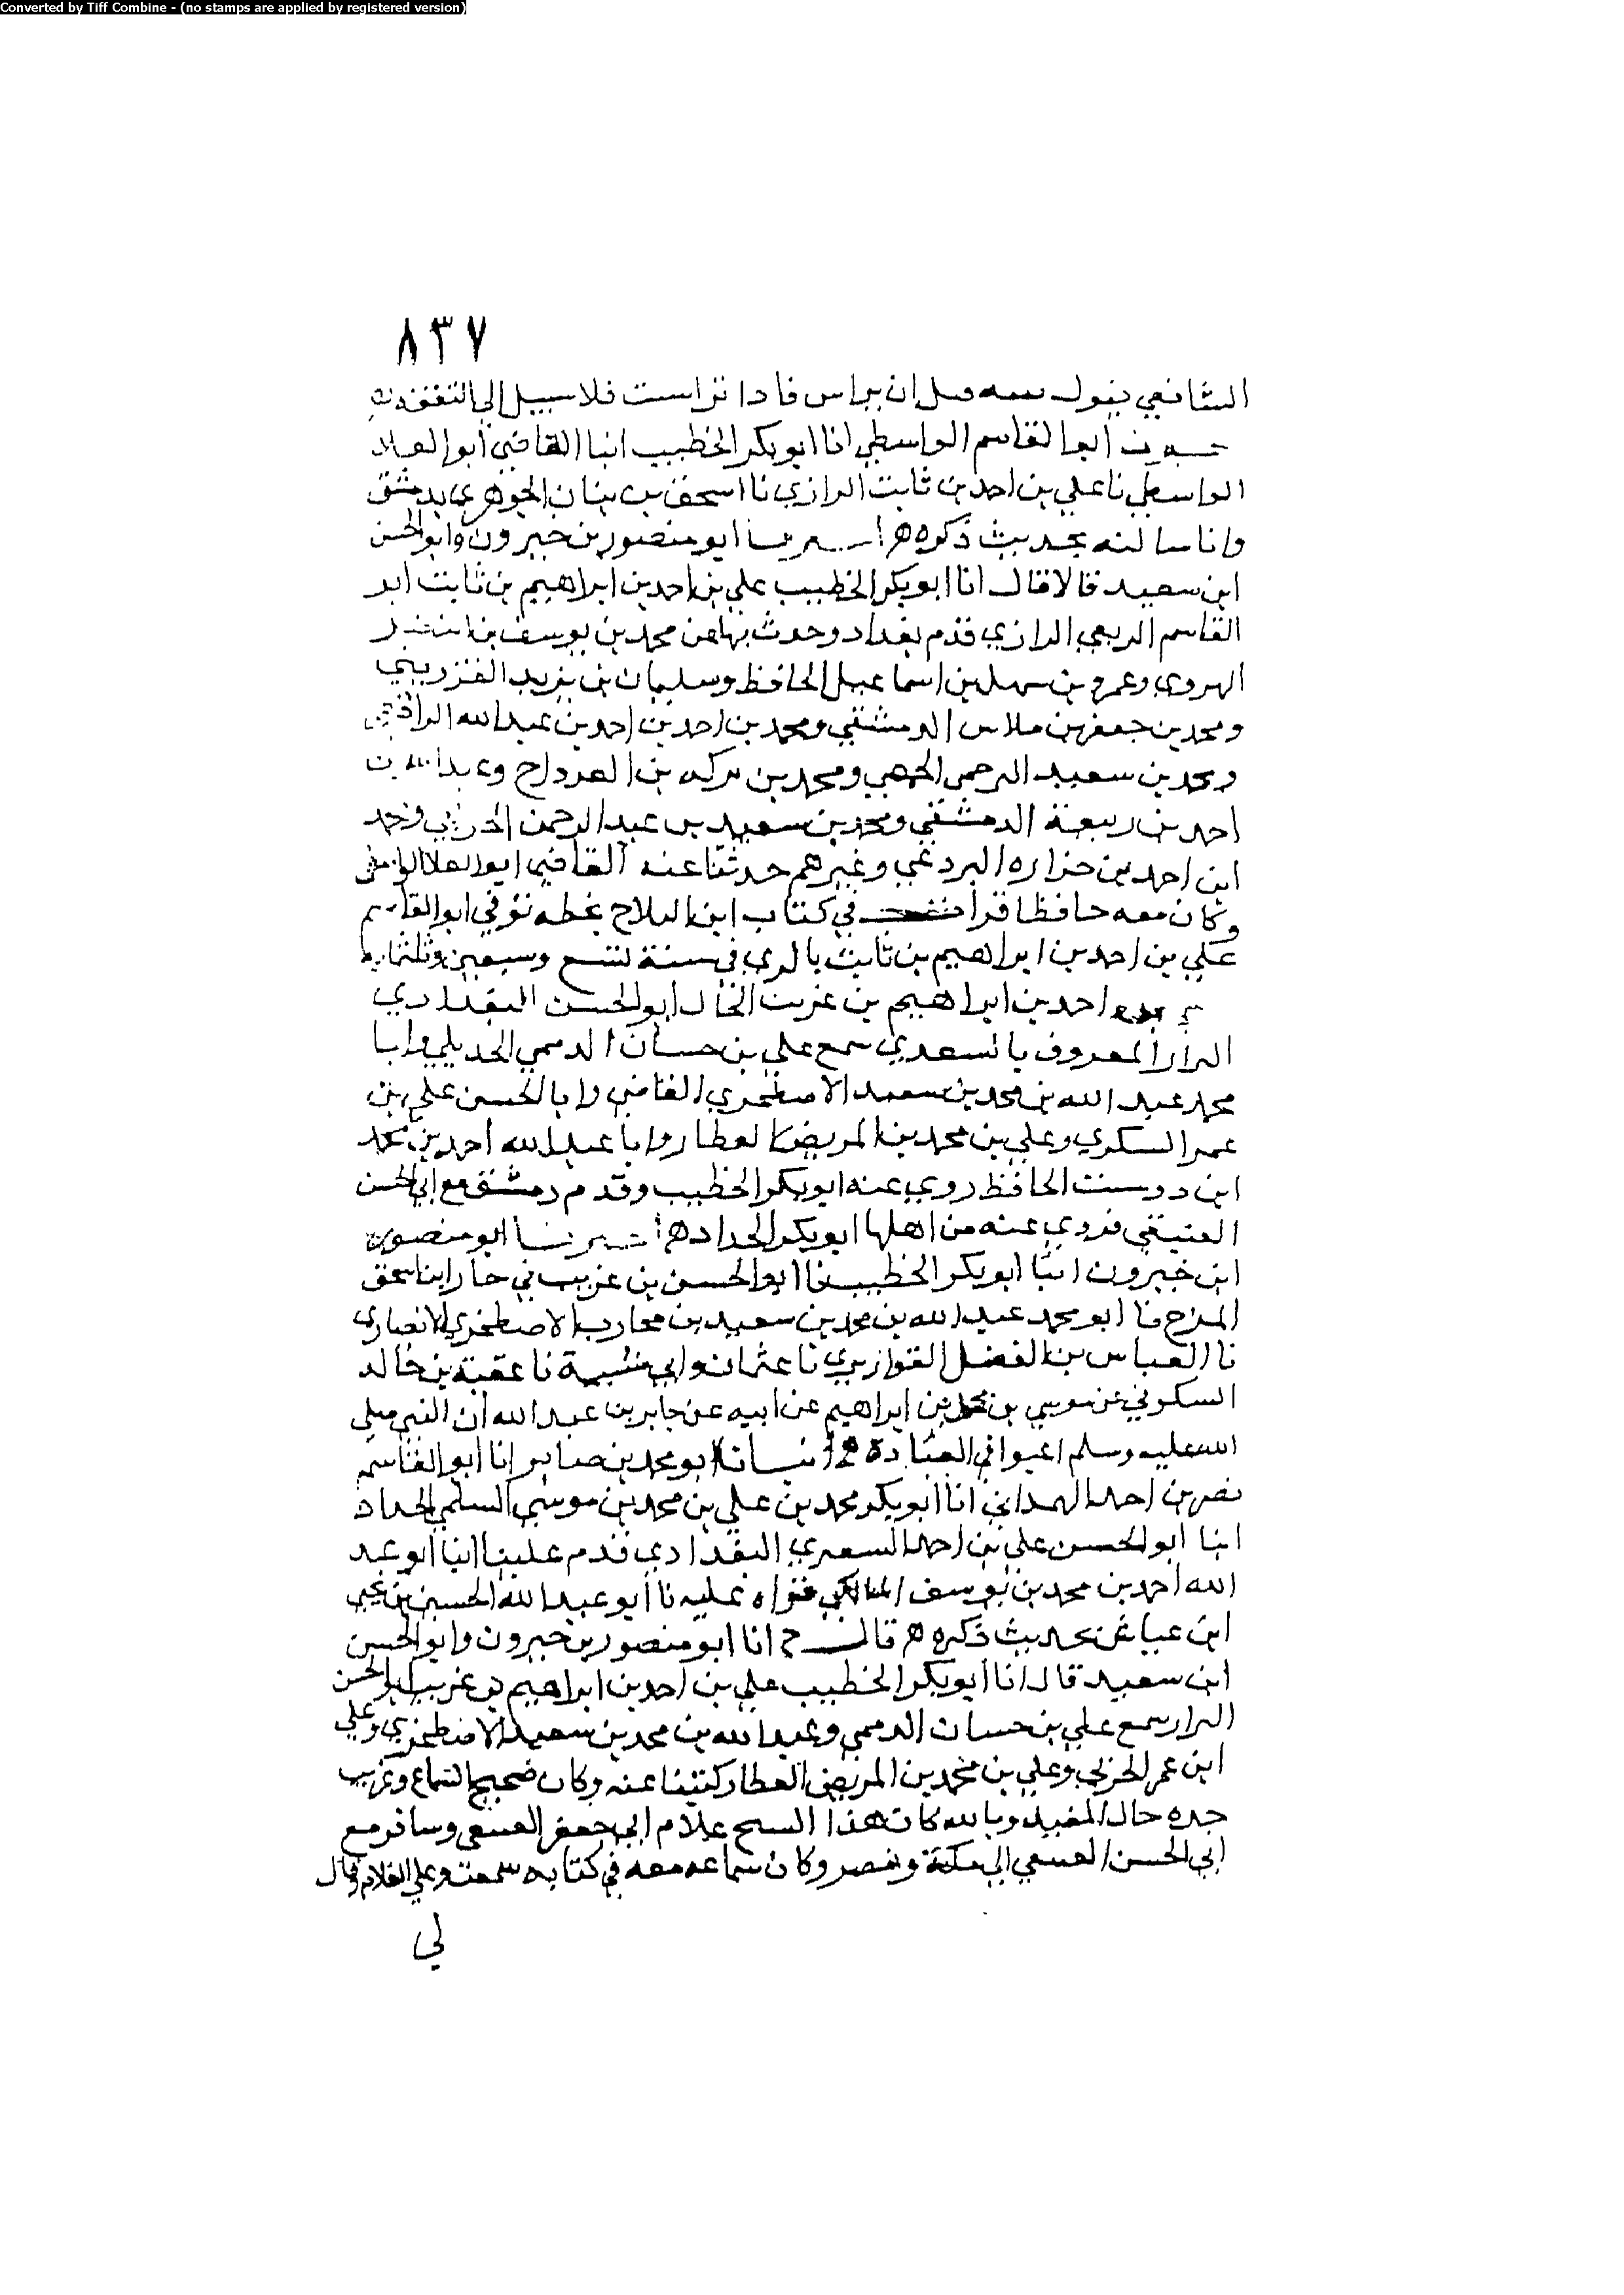 Converted by Tiff Combine - (no stamps are applied by registered version)
٨٣٧
الشافعي يقول قبل ان يراس فاذا تراست فلا سبيل الى التفقه
ابوا لقاسم الواسطي انا ابو بكر الخطيب انبا القاضي ابو العلا
الواسطي نا علي بن احمد بن ثابت الرازي نا اسحق بن بنان الجوهري بدمشق
وانا سالته بحديث ذكره ه ابو منصور بن خيرون وابو الحسن
ابن سعيد قالا قال انا ابو بكر الخطيب علي بن احمد بن ابراهيم بن ثابت ابو
القاسم الربعي الرازي قدم بغداد وحدث بها عن محمد بن يوسف بن
الهروي وعمرو بن سهل بن اسماعيل الحافظ وسليمان بن يزيد القزويني
ومحمد بن جعفر بن ملاس الدمشقي ومحمد بن احمد بن احمد بن عبد الله الرافقي
ومحمد بن سعيد الترخمي الحمصي ومحمد بن بركه بن الفرداح وعبد الله بن
احمد بن ربيعة الدمشقي ومحمد بن سعيد بن عبد الرحمن ومحمد
ابن احمد بن حزاره البردعي وغيرهم حدثنا عنه القاضي ابو العلا الواسطي
وكان معه حافظا قرات في كتاب ابن البلاح بخطه توفي ابو القاسم
علي بن احمد بن ابراهيم بن ثابت بالري في سنة تسع وسبعين وثلثمايه
احمد بن ابراهيم بن غريب الخال ابو الحسن البغدادي
البزار المعروف بالسعدي سمع علي بن حسان الدممي الجديلي وابا
محمد عبد الله بن محمد بن سعيد الاصطخري القاضي وابا الحسن علي بن
عمر السكري وعلي بن محمد بن المريض العطار وابا عبد الله احمد بن محمد
ابن دوست الحافظ روى عنه ابو بكر الخطيب وقدم دمشق مع ابي الحسن
العتيقي فروى عنه من اهلها ابو بكر الحداد ه ابو منصور
ابن خيرون انبا ابو بكر الخطيب نا ابو الحسن بن غريب في
نا ابو محمد عبد الله بن محمد بن سعيد بن محارب الاصطخري الانصاري
نا العباس بن الفضل القواريري نا عثمان وابي شيبة نا عقبة بن خالد
السكوني عن موسى بن محمد بن ابراهيم عن ابيه عن جابر بن عبد الله ان النبي صلى
الله عليه وسلم اغبوا في العيادة ه انبانا ابو محمد بن صابر انا ابو القاسم
نصر بن احمد الهمداني انا ابو بكر محمد بن علي بن محمد بن موسى السلمي الحداد
انبا ابو الحسن علي بن احمد السعدي البغدادي قدم علينا انبا ابو عبد
الله احمد بن محمد بن يوسف المالكي قراه عليه نا ابو عبد الله الحسين بن يحيى
ابن عياش بحديث ذكره ه قال انا ابو منصور بن خيرون وابو الحسن
ابن سعيد قال انا ابو بكر الخطيب علي بن احمد بن ابراهيم بن غريب ابو الحسن
البزار سمع علي بن حسان الدممي وعبد الله بن محمد بن سعيد الاصطخري وعلي
ابن عمر الحربي وعلي بن محمد بن المريض العطار كتبنا عنه وكان صحيح السماع وغريب
جده خال المقتدر وبالله كان هذا الشيخ غلام ابي جعفر وسافر مع
ابي الحسن الى مكة ومصر وكان سماعه معه في كتابه سمعت وعلي الغلام قال
لي